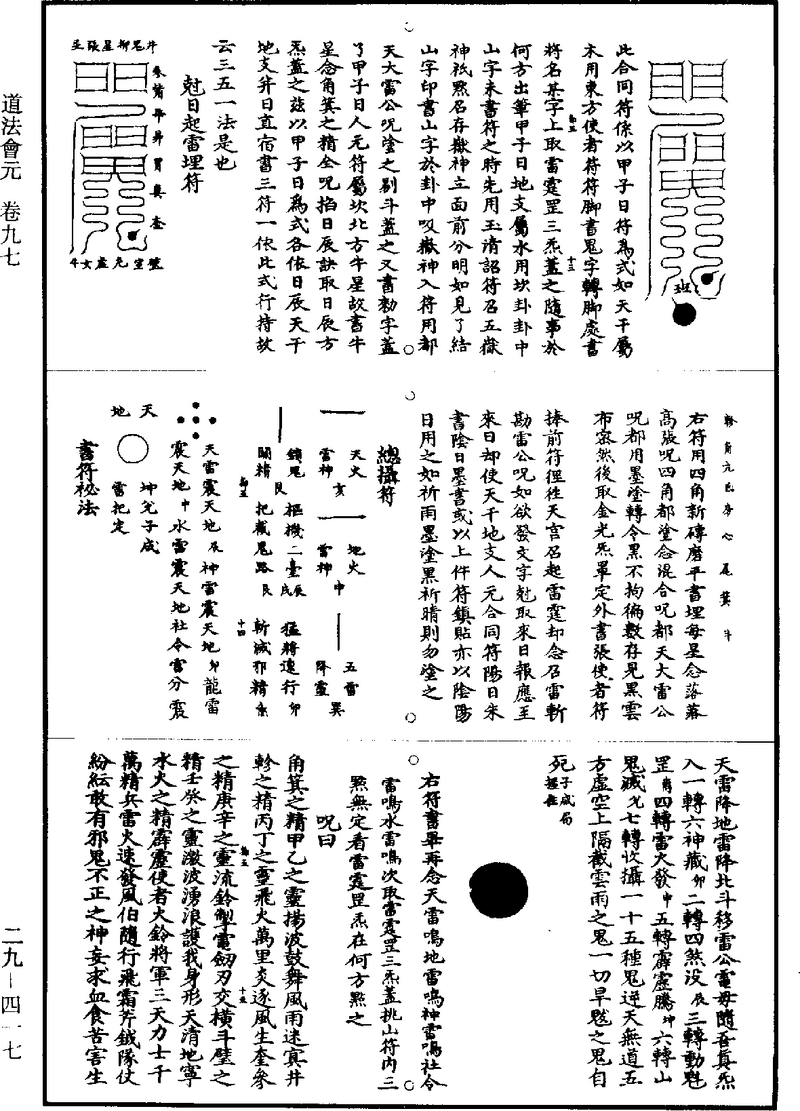 道法會元　卷九七
二九－四一七
此合同符係以甲子日符爲式如天干屬
木用東方使者符符脚書鬼字轉脚處書
將名某字上取雷霆罡三炁蓋之隨事於
何方出筆甲子日地支屬水用坎卦卦中
山字未書符之時先用玉清詔符召五嶽
神祇㸃名存嶽神立面前分明如見了結
山字印書山字於卦中㕮嶽神入符用都
天大雷公呪塗之剔斗蓋之又書勑字蓋
了甲子日人元符屬坎北方牛星故書牛
星念角箕之精全呪掐日辰訣取日辰方
炁蓋之玆以甲子日爲式各依日辰天干
地支并日直宿書三符一依此式行持故
云三五一法是也
尅日起雷埋符
井鬼柳星張
參觜畢昴胃婁奎
壁室危虛女牛
軫角亢氐房心尾箕斗
右符用四角新磚磨平書埋每星念落落
高張呪四角都塗念混合呪都天大雷公
呪都用墨塗轉令黑不拘徧數存見黑雲
布密然後取金光炁罩定外書張使者符
捧前符徑徃天宫召起雷霆却念召雷斬
勘雷公呪如欲發文字尅取來日報應至
來日却使天干地支人元合同符陽日朱
書陰日墨書或以上件符鎮貼亦以陰陽
日用之如祈雨墨塗黑祈晴則勿塗之
總攝符
天火
雷神　亥
地火
雷神　申
五雷
降靈　巽
鎖鬼　艮
關精
樞機二臺　辰戌
把截鬼路　艮
猛將速行　卯
斬滅邪精
天雷震天地　辰　神雷震天地　卯　龍雷
震天地　中　水雷震天地社令雷分震
天
地
坤兌子成
雷把定
書符祕法
天雷降地雷降北斗移雷公電母隨吾真炁
入一轉六神藏卯二轉四煞没辰三轉動魁
罡四轉雷火發申五轉霹靂騰坤六轉山
鬼滅七轉收攝一十五種鬼逆天無道五
方虛空上隔截雲雨之鬼一切旱魃之鬼自
死子戌局
右符書畢再念天雷鳴地雷鳴神雷鳴社令
雷鳴水雷鳴次取雷霆罡三炁蓋挑山符内三
㸃無定看雷霆罡炁在何方㸃之
呪曰
角箕之精甲乙之靈揚波鼓舞風雨迷㝠井
軫之精丙丁之靈飛火萬里炎逐風生奎參
之精庚辛之靈流鈴掣電劒刃交橫斗壁之
精壬癸之靈激波湧浪護我身形天清地寧
水火之精霹靂使者火鈴將軍三天力士千
萬精兵雷火速發風伯隨行飛霜斧鉞隊仗
紛紜敢有邪鬼不正之神妄求血食苦害生